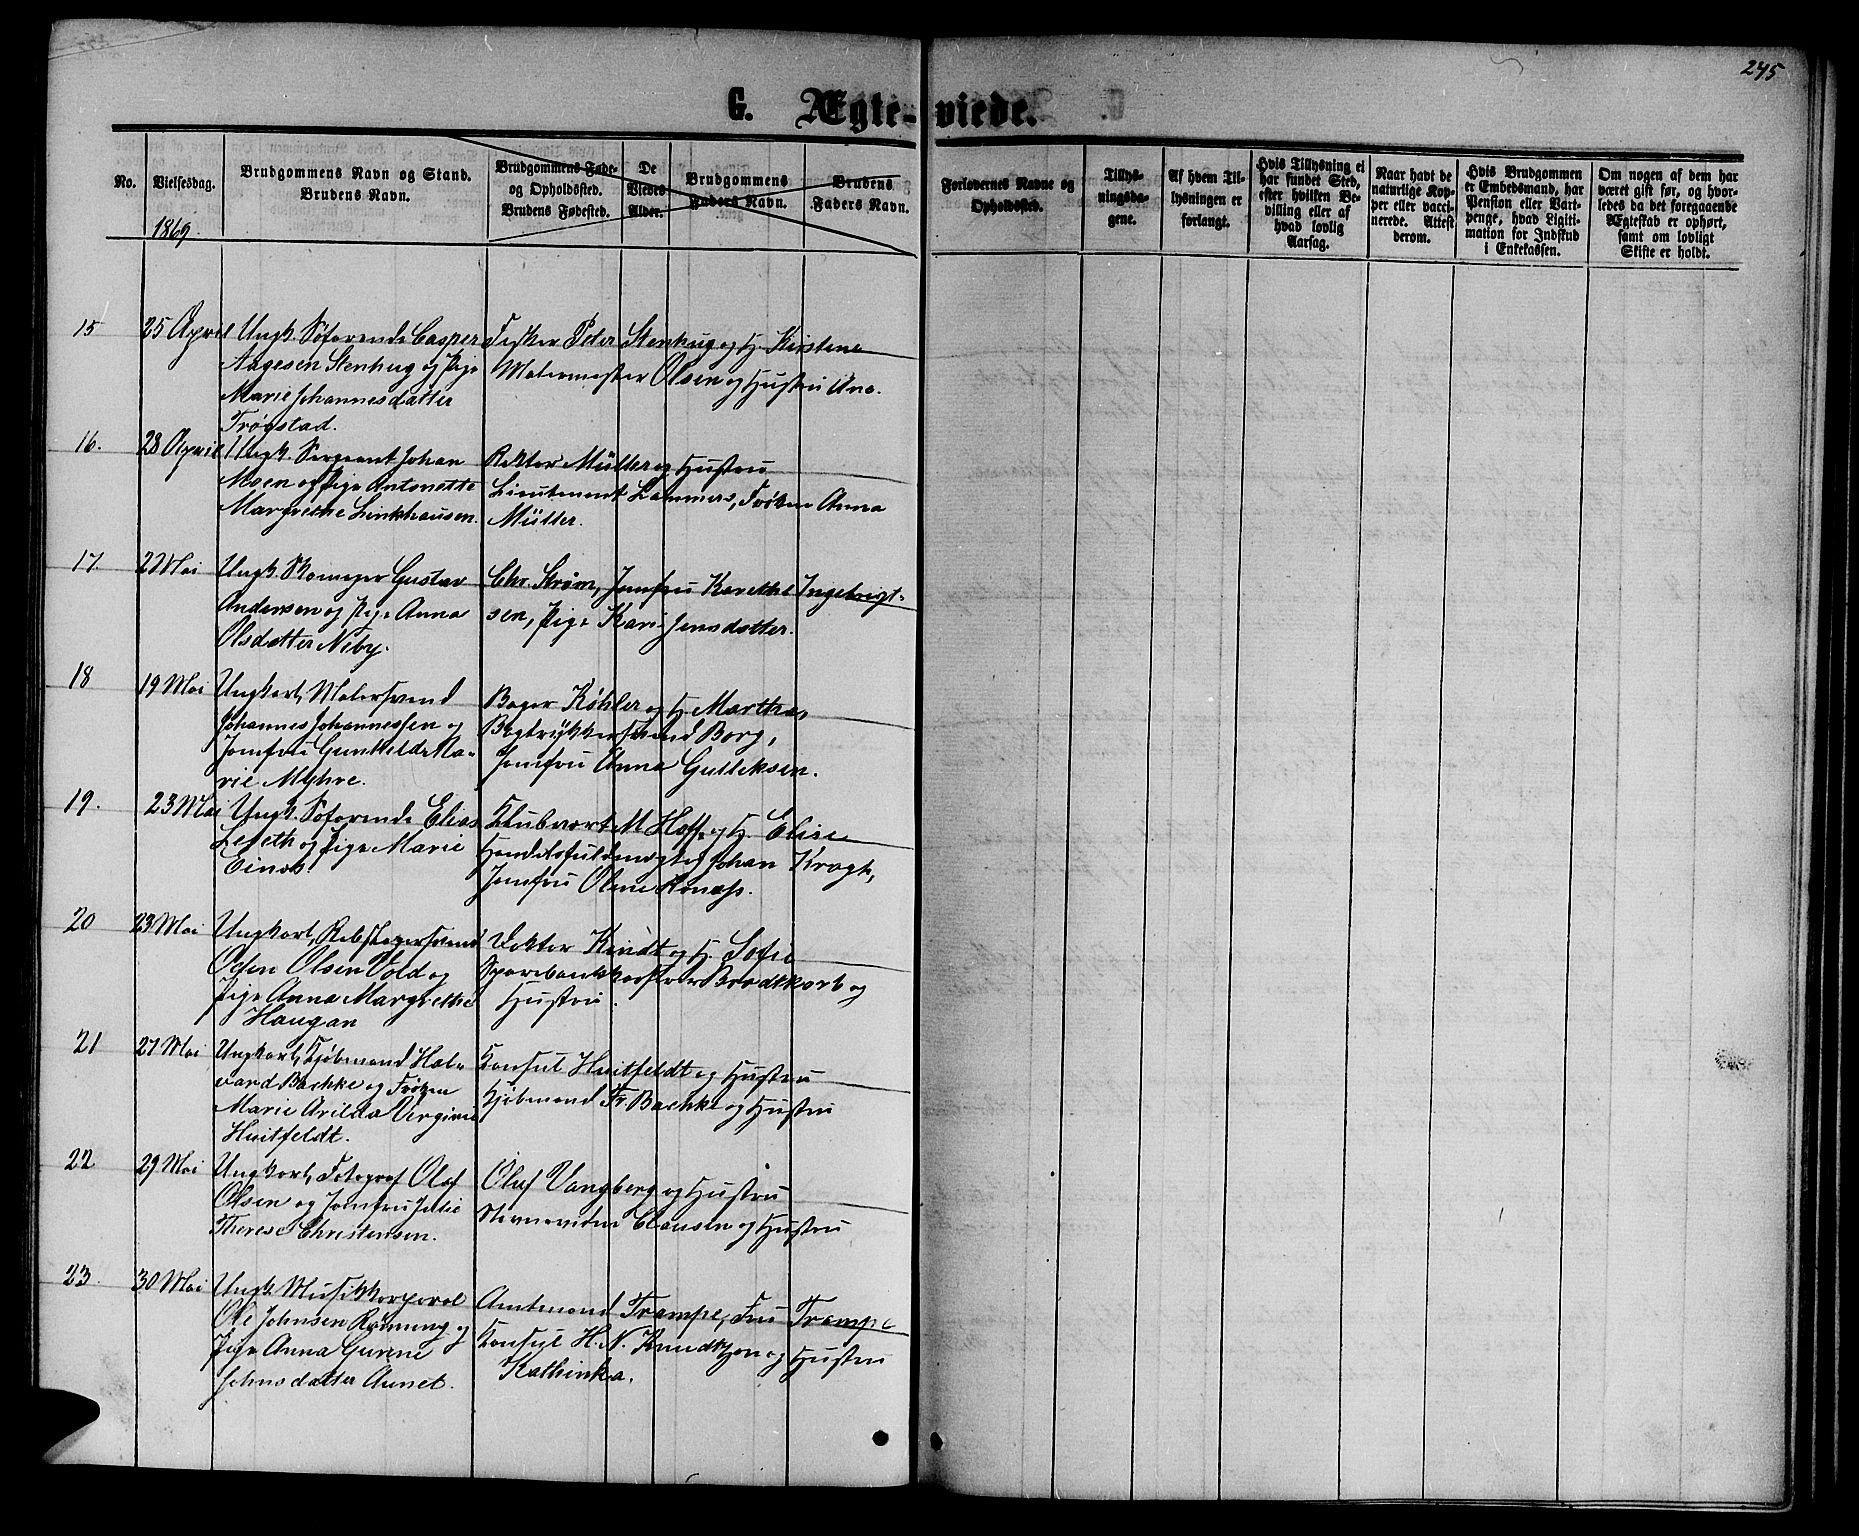 245
G. Ægte-viede.
No.
Vielsesdag.
Brudgommens Navn og Stand.
Brudens Navn.
Brudgommens Føde-
og Opholdssted.
Brudens Fødested.
De
Viedes
Alder.
Brudgommens
Faders Navn.
Brudens
Faders Navn.
Forlovernes Navne og
Opholdssted.
Tillys-
ningsda-
gene.
Af hvem Til-
lysningen er
forlangt.
Hvis Tillysning ei
har fundet Sted,
efter hvilken Be-
villing eller af
hvad lovlig
Aarsag.
Naar havt de
naturlige Kop-
per eller vacci-
nerede. Attest
derom.
Hvis Brudgommen
er Embedsmand, har
Pension eller Vart-
penge, hvad Ligiti-
mation for Indskud
i Enkekassen.
Om nogen af dem har
været gift før, og hvor-
ledes da det foregaaende
Ægteskab er ophørt,
samt om lovligt
Skifte er holdt.
1869.
15 25 April Ungk. Søfarende Casper
Aagesen Stenhug og Pige
Marie Johannesdatter
Trøgstad.
Fisker Peter Stenhug og H. Kirstine
Malermester Olsen og Hustru Ana.
16. 28 April Ungk. Sergeant Johan
Moen og Pige Antonette
Margrethe Linkhausen.
Rektor Müller og Hustru
Lieutenant Lammers, Frøken Anna
Müller.
17 2 Mai Ungk. Skomager Gustav
Andersen og Pige Anna
Olsdatter Neby.
Chr. Strøm, Jomfru Karethe Ingebrigt-
sen, Pige Kari Jensdatter.
18 19 Mai Ungkarl, Malersvend
Johannes Johannessen og
Jomfru Gunhilde Ma-
rie Myhre.
Bager Køhler og H. Martha,
Bogtrykkersvend Borg,
Jomfru Anna Gulliksen.
19. 23 Mai Ungk. Søfarende Elias
Leseth og Pige Marie
Einos
Klubvært M. Hoff og H. Elise
Handelsfuldmægtig Johan Krogh,
Jomfru Oline Ronæss.
20 23 Mai Ungkarl, Rebslagersvend
Olsen Vold og
Pige Anna Margrethe
Haugan
Doktor Kindt og H. Sofie
Sparebankkasserer Brodtkorb og
Hustru.
21 27 Mai Ungkarl, Kjøbmand Hal-
vard Bachke og Frøken
Marie Arilda Virginie
Huitfeldt.
Konsul Huitfeldt og Hustru
Kjøbmand Fr. Bachke og Hustru
22 29 Mai Ungkarl, Fotograf Olaf
Olsen og Jomfru Julie
Therese Christensen.
Olaf Vangberg og Hustru
Stevnevidne Clausen og Hustru
23. 30 Mai Ungk. Musikkorporal
Ole Johnsen Rønning og
Pige Anna Gurine
Johnsdatter Aunet.
Amtmand Trampe, Fru Trampe
Konsul H. N. Knudtzon og Hustru
Kathinka.